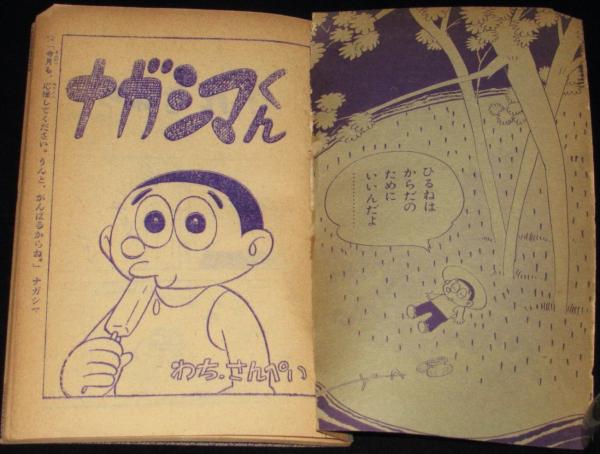 ナガシマくん
わち・さんぺい
「今月も、応援してください。うんと、がんばるからね。」ナガシマ
ひるねは
からだの
ために
いいんだよ
…………